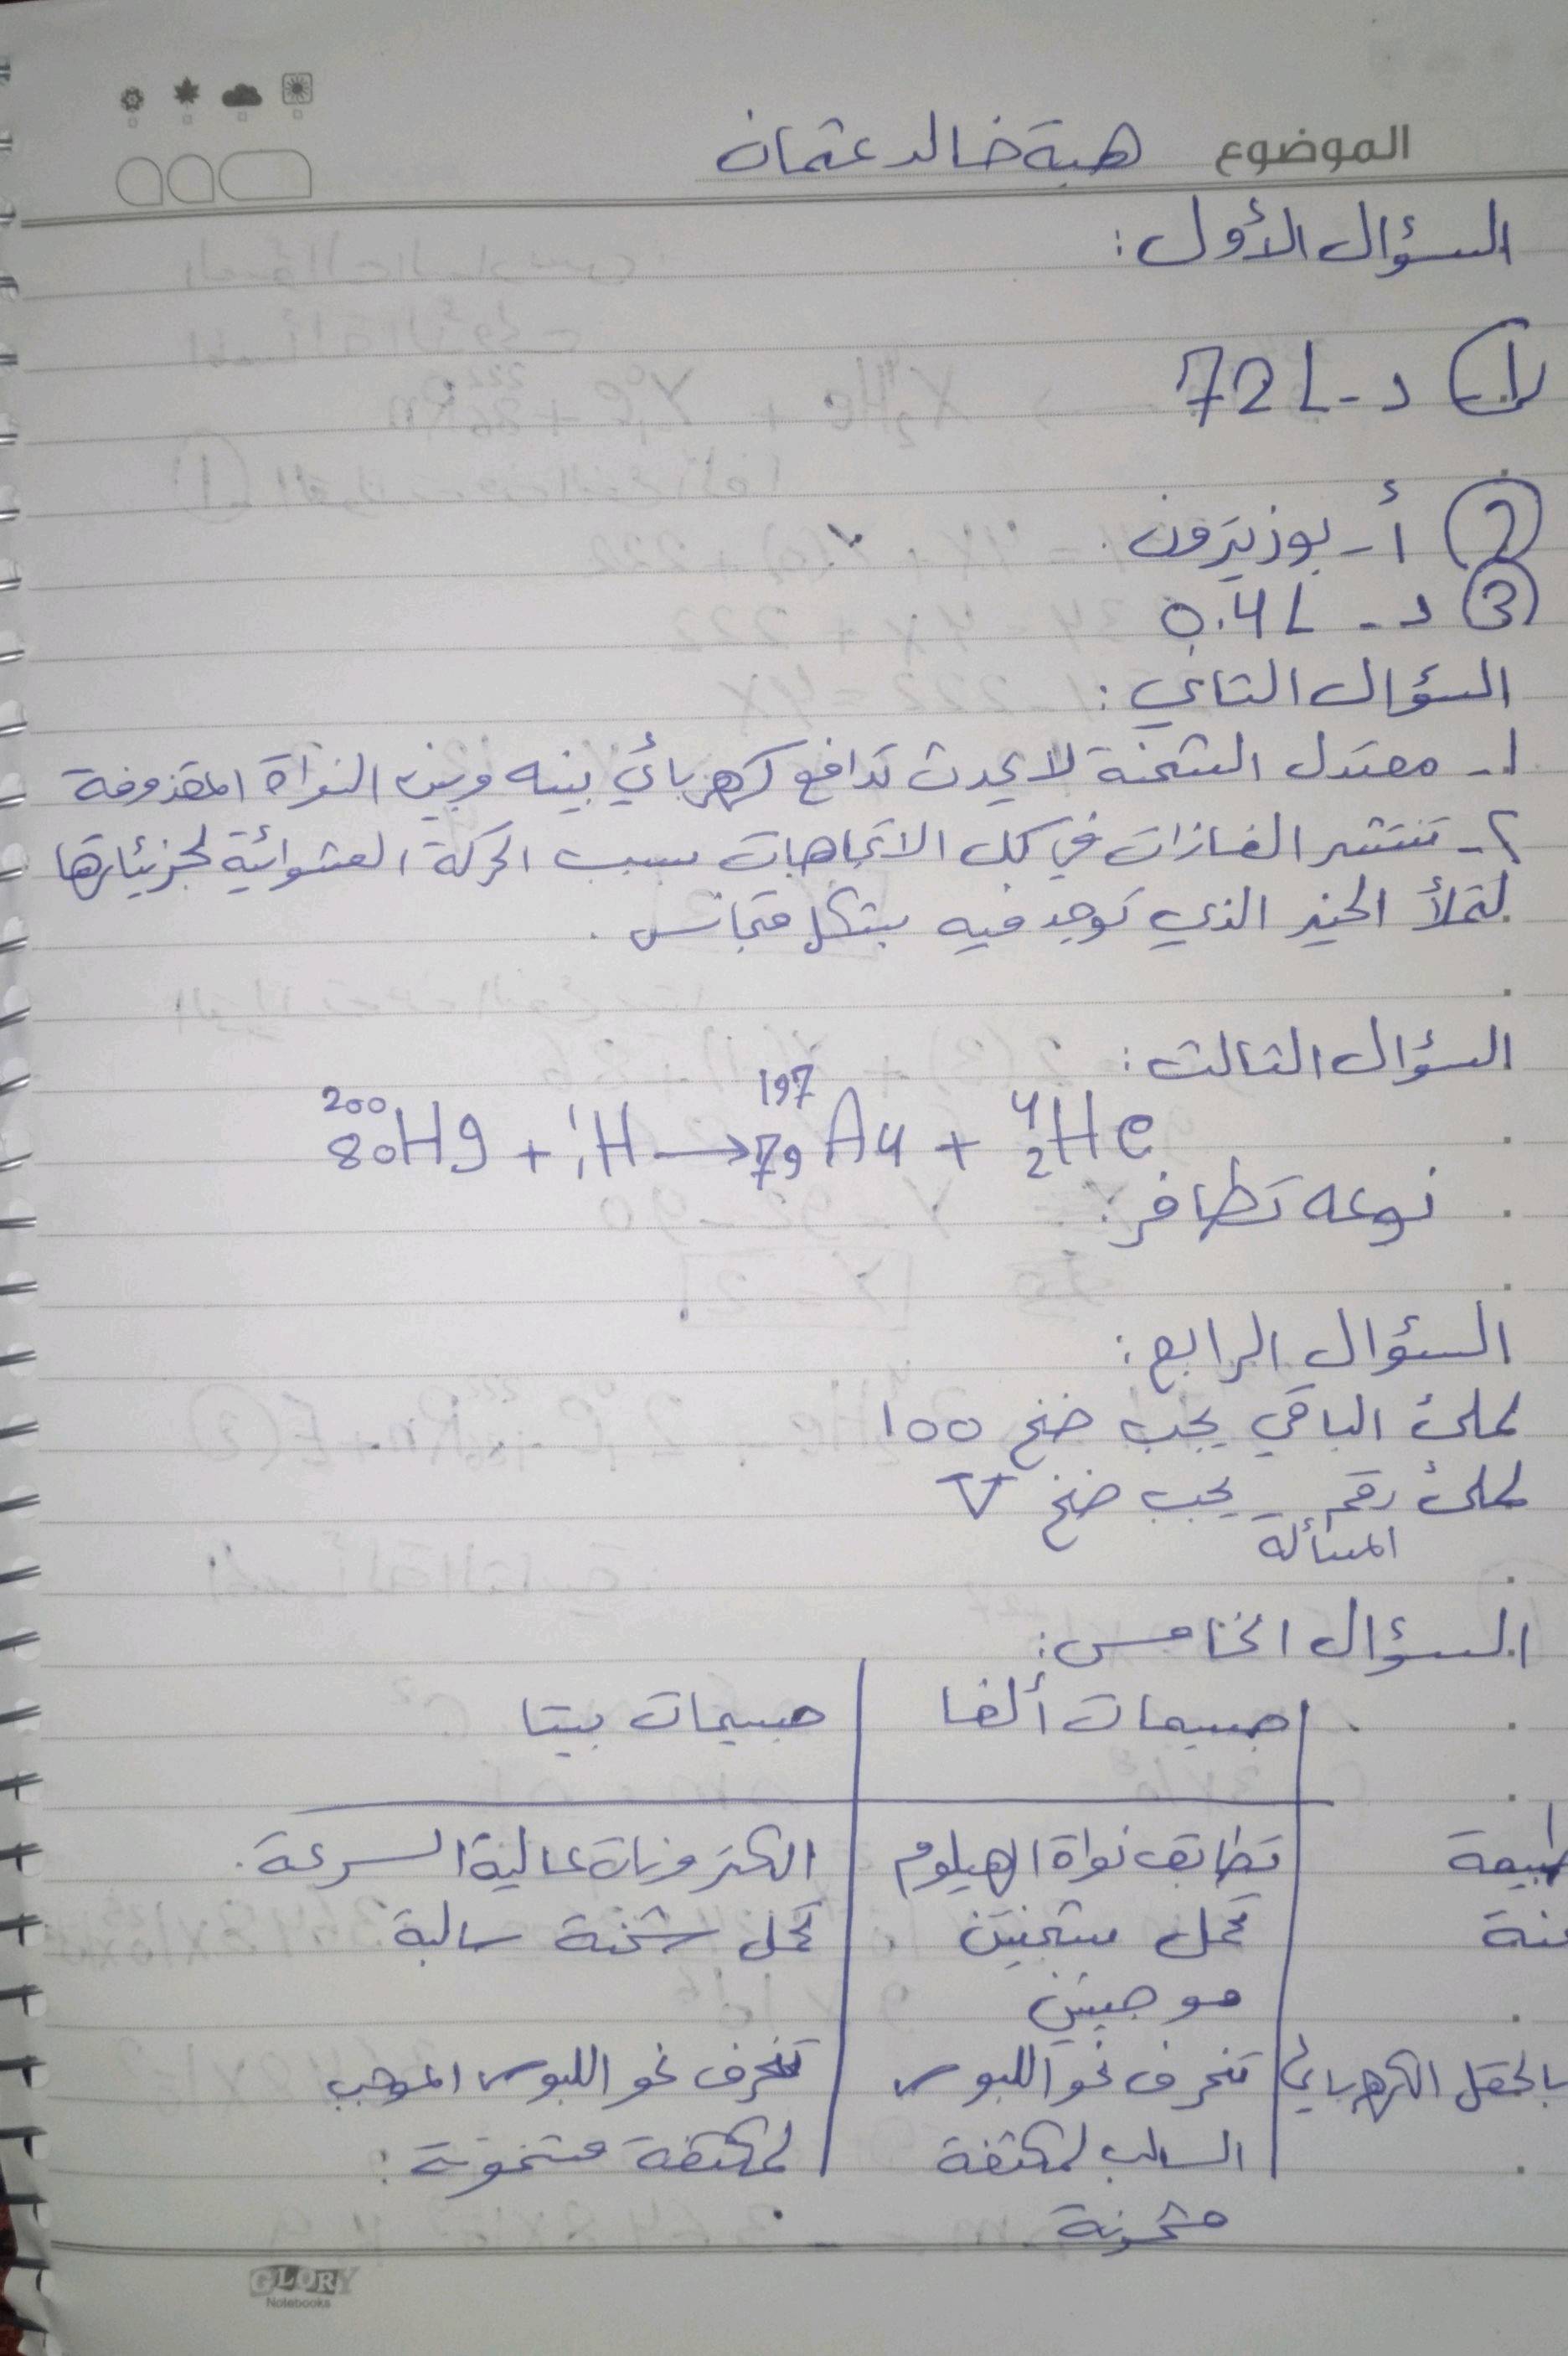 الموضوع هبة خالد عثمان
السؤال الأول:
1 د- 72L
2 أ- بوزيترون.
3 د- 0.4L
السؤال الثاني:
1- معتدل الشحنة لا يحدث تدافع كهربائي بينه وبين النواة المقذوفة
2- تنتشر الغازات في كل الاتجاهات بسبب الحركة العشوائية لجزيئاتها
لتملأ الحيز الذي توجد فيه بشكل متجانس.
السؤال الثالث:
²⁰⁰₈₀Hg + ¹₁H → ¹⁹⁷₇₉Au + ⁴₂He
نوعه تطافر.
السؤال الرابع:
لملئ الباقي يجب ضخ 100
لملئ رقم المسألة يجب ضخ V
السؤال الخامس:
جسيمات ألفا جسيمات بيتا
طبيعة تطابق نواة الهيلوم الكترونات عالية السرعة.
تحمل شحنتين تحمل شحنة سالبة
موجبتين
بالحقل الكهربائي تنحرف نحو اللبوس تنحرف نحو اللبوس الموجب
السالب لمكثفة لمكثفة مشحونة:
مشحونة
GLORY
Notebooks